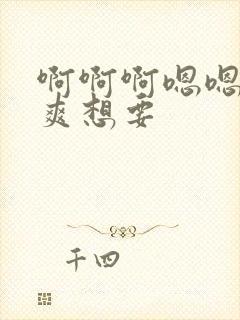 啊啊啊嗯嗯
爽想要
千四